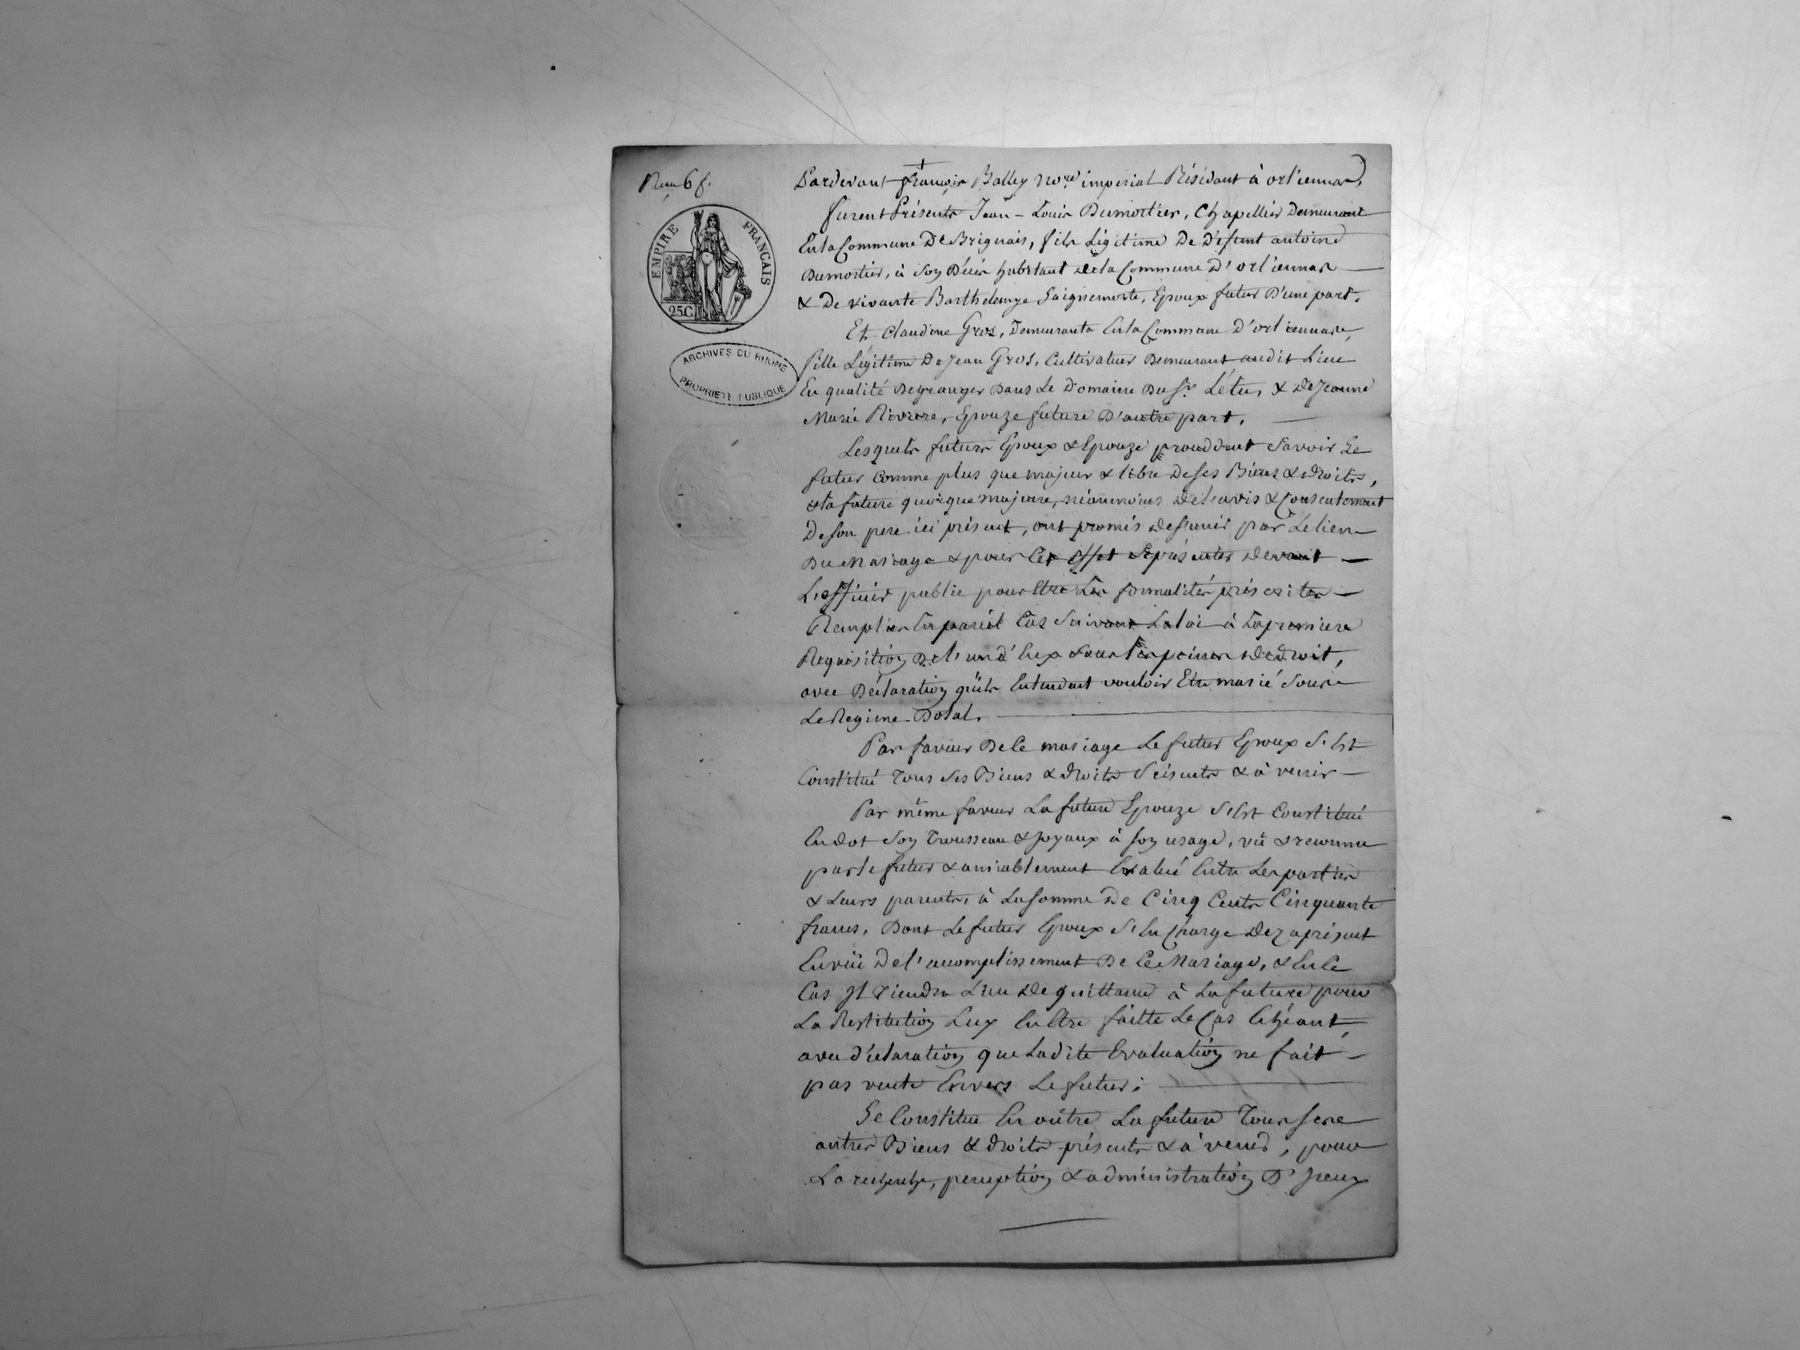 EMPIRE FRANÇAIS
25.C.
ARCHIVES DU RHONE
PROPRIETE PUBLIQUE
Pardevant françois Balley No.re imperial Résidant à orliennas,
furent Présents Jean-Louis Dumortier, Chapellier Demeurant
En la Commune De Brignais, fils Légitime De Défunt antoine
Dumortier, à son Décès habitant de la Commune d'orliennas
& De vivante Barthelemye Saignemorte, Epoux futur D'une part,
Et Claudine Gros, Demeurante En la Commune D'orliennas,
fille Légitime De Jean Gros, Cultivateur Demeurant audit Lieu
En qualité De granger Dans Le Domaine Du Sr. Létu, & De Jeanne
Marie Riviere, Epouze future D'autre part.
Lesquels futurs Epoux & Epouze procédant Savoir Le
futur comme plus que majeur & libre De ses Biens & droits,
& la future quoique majeure, néanmoins de l'avis & Consentement
De son pere ici présent, ont promis de s'unir par Le lien
Du Mariage & pour Cet Effet se présenter devant
L'officier public pour Etre Les formalités préscrites
Remplies En pareil Cas Suivant La loi à La premiere
Requisition De l'un d'Eux sous Les peines de droit,
avec Déclaration qu'ils Entendent vouloir Etre marié Sous
Le Regime Dotal.
Par faveur De Ce mariage Le futur Epoux S'Est
Constitué Tous Ses Biens & droits & à venir
Par même faveur La future Epouze S'Est Constitué
En dot son Trousseau & joyaux à son usage, vü & reconnu
par le futur & amiablement Evalué Entre Les parties
& Leurs parents, à La somme de Cinq Cents Cinquante
francs, Dont Le futur Epoux S'En Charge Dez aprésent
En vüe De l'accomplissement De Ce Mariage, & En Ce
Cas Il Tiendra Lieu de quittance à La future pour
La Restitution Luy En Etre faitte Le Cas Echéant,
avec déclaration que Ladite Evaluation ne fait
pas vente Envers Le futur.
Se Constitue En outre La future Tous ses
autres Biens & droits présents & à venir, pour
La recherche, perception & administration D'Iceux